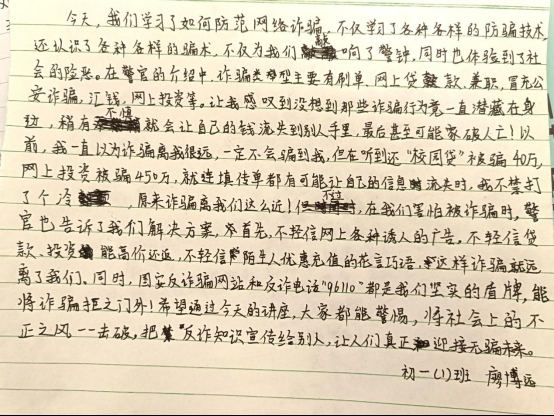 今天,我们学习了如何防范网络诈骗,不仅学习了各种各样的防骗技术,
还认识了各种各样的骗术,不仅为我们敲响了警钟,同时也体验到了社
会的险恶。在警官的介绍中,诈骗类型主要有刷单,网上贷款,兼职,冒充公
安诈骗,汇钱,网上投资等。让我感叹到没想到那些诈骗行为竟一直潜藏在身
边,稍有不慎就会让自己的钱流失到别人手里,最后甚至可能家破人亡!以
前,我一直以为诈骗离我很远,一定不会骗到我,但在听到还“校园贷”被骗40万,
网上投资被骗450万,就连填传单都有可能让自己的信息流失时,我不禁打
了个冷,原来诈骗离我们这么近!,在我们害怕被诈骗时,警
官也告诉了我们解决方案,首先,不轻信网上各种诱人的广告。不轻信贷
款、投资能高价还返,不轻信陌生人优惠充值的花言巧语,这样诈骗就远
离了我们。同时,国安反诈骗网站和反诈电话“96110”都是我们坚实的盾牌,能
将诈骗拒之门外!希望通过今天的讲座,大家都能警惕,将社会上的不
正之风一一击破。把“反诈知识宣传给别人,让人们真正迎接无骗未来。
初一(1)班 廖博远